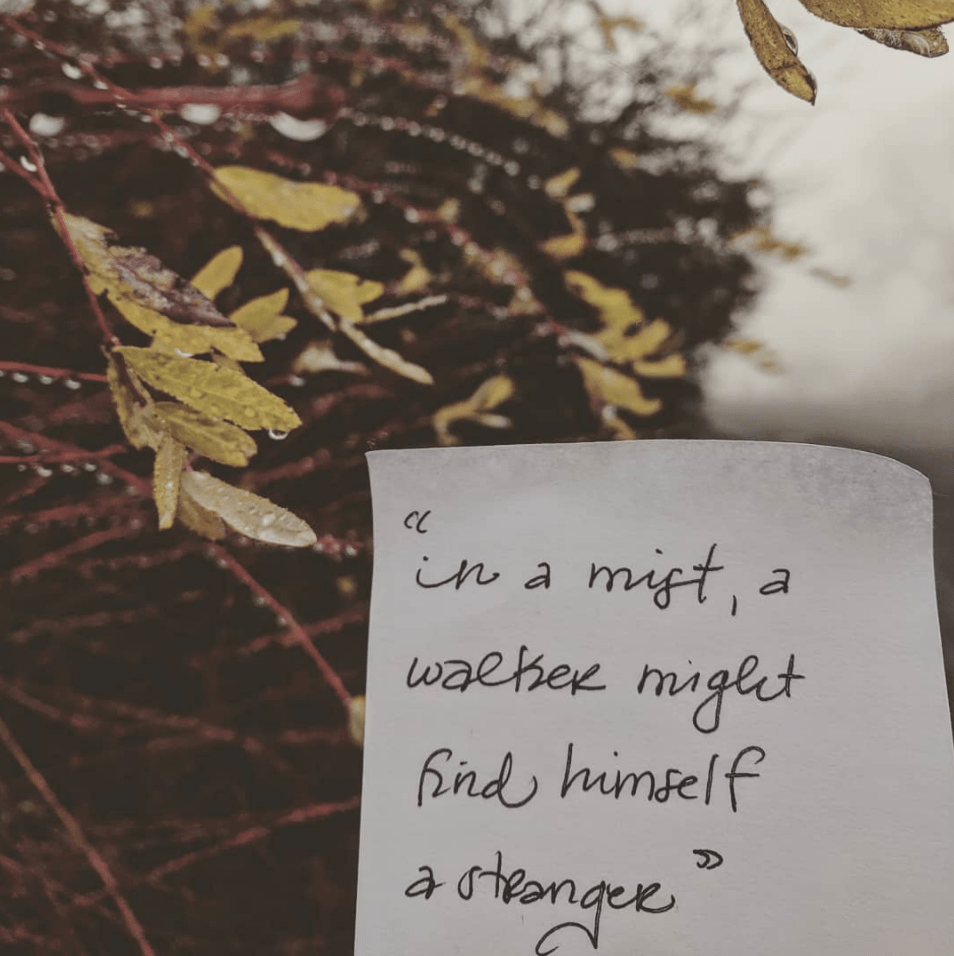 “
in a mist, a
walker might
find himself
a stranger”